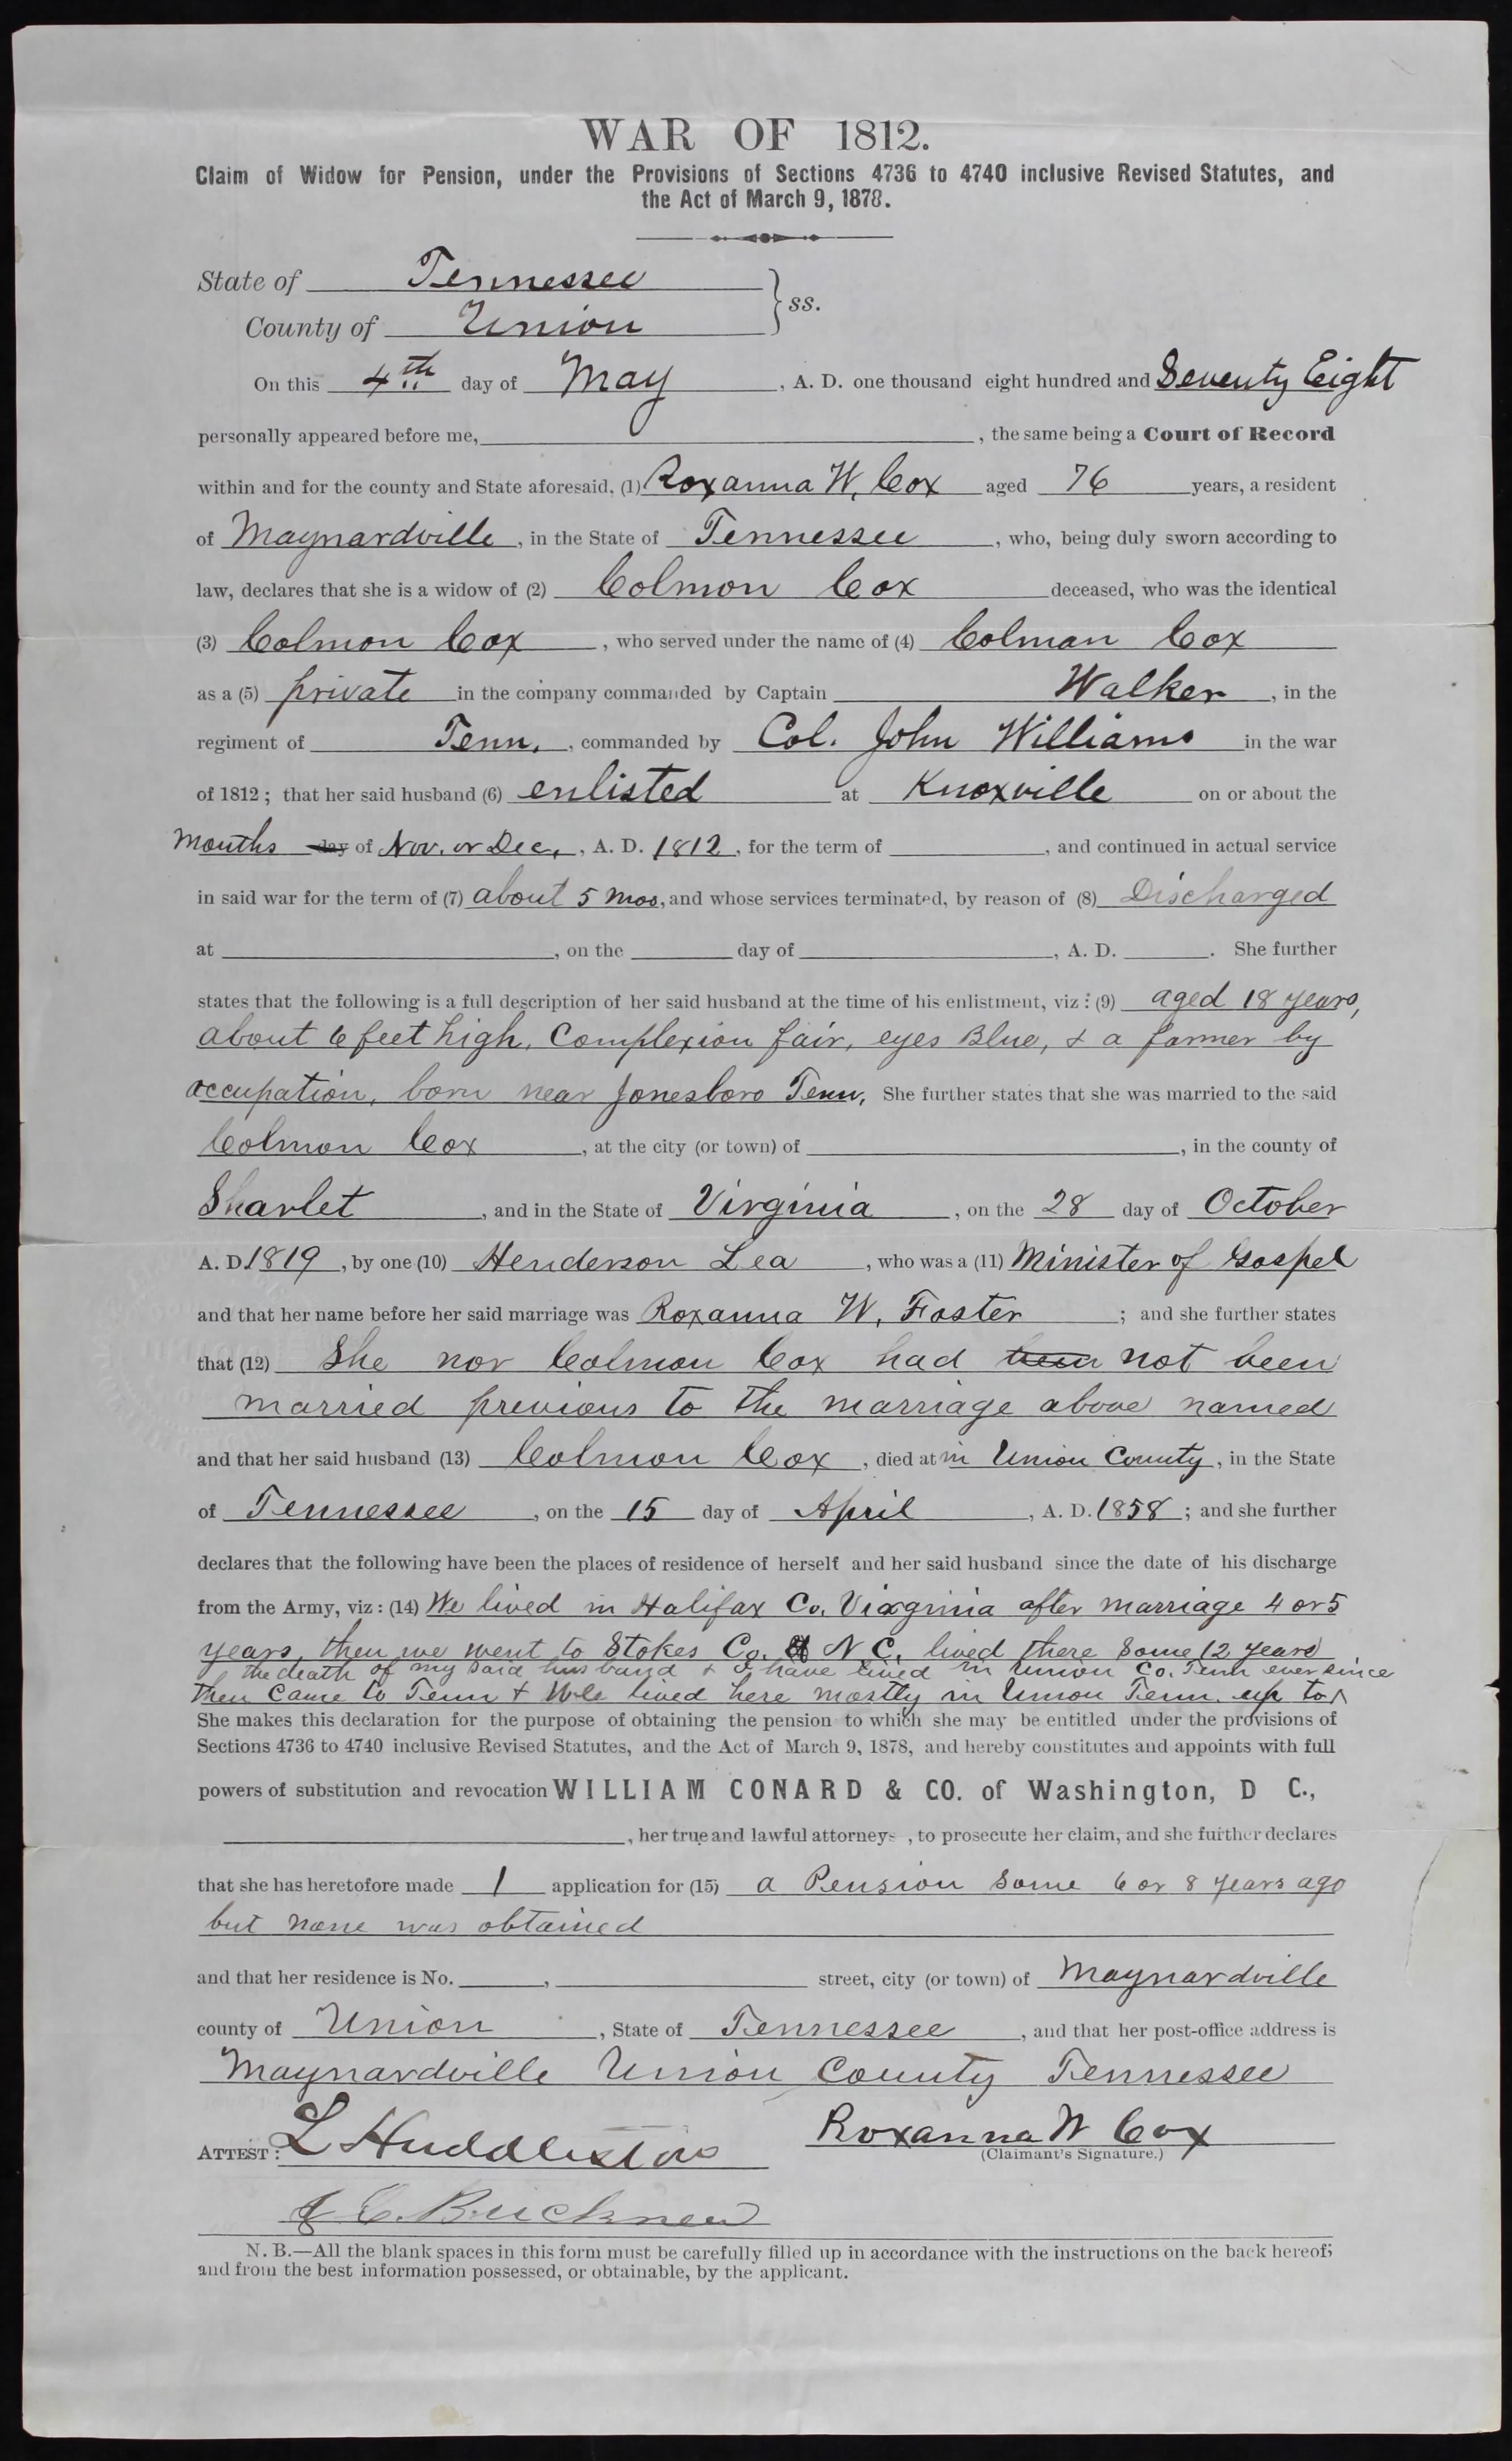 WAR OF 1812.
Claim of Widow for Pension, under the Provisions of Sections 4736 to 4740 inclusive Revised Statutes, and
the Act of March 9, 1878.
State of Tennessee
County of Union } ss.
On this 4th day of May, A. D. one thousand eight hundred and Seventy Eight
personally appeared before me, , the same being a Court of Record
within and for the county and State aforesaid, (1) Roxanna W. Cox aged 76 years, a resident
of Maynardville, in the State of Tennessee, who, being duly sworn according to
law, declares that she is a widow of (2) Colmon Cox deceased, who was the identical
(3) Colmon Cox, who served under the name of (4) Colman Cox
as a (5) private in the company commanded by Captain Walker, in the
regiment of Tenn., commanded by Col. John Williams in the war
of 1812; that her said husband (6) enlisted at Knoxville on or about the
Months day of Nov. or Dec., A. D. 1812, for the term of , and continued in actual service
in said war for the term of (7) about 5 mos, and whose services terminated, by reason of (8) Discharged
at , on the day of , A. D. . She further
states that the following is a full description of her said husband at the time of his enlistment, viz: (9) aged 18 years,
about 6 feet high, Complexion fair, eyes Blue, & a farmer by
occupation, born near Jonesboro Tenn, She further states that she was married to the said
Colmon Cox, at the city (or town) of , in the county of
Sharlet, and in the State of Virginia, on the 28 day of October
A. D. 1819, by one (10) Henderson Lea, who was a (11) Minister of Gospel
and that her name before her said marriage was Roxanna W. Foster; and she further states
that (12) She nor Colmon Cox had been not been
married previous to the marriage above named
and that her said husband (13) Colmon Cox, died at in Union County, in the State
of Tennessee, on the 15 day of April, A. D. 1858; and she further
declares that the following have been the places of residence of herself and her said husband since the date of his discharge
from the Army, viz: (14) We lived in Halifax Co. Viaginia after marriage 4 or 5
years, then we went to Stokes Co. N C. lived there Some 12 years
the death of my said husband & I have lived in Union Co. Tenn ever since
then came to Tenn & We lived here mostly in Union Tenn. up to ^
She makes this declaration for the purpose of obtaining the pension to which she may be entitled under the provisions of
Sections 4736 to 4740 inclusive Revised Statutes, and the Act of March 9, 1878, and hereby constitutes and appoints with full
powers of substitution and revocation WILLIAM CONARD & CO. of Washington, D C.,
, her true and lawful attorneys, to prosecute her claim, and she further declares
that she has heretofore made 1 application for (15) a Pension Some 6 or 8 years ago
but none was obtained
and that her residence is No. , street, city (or town) of Maynardville
county of Union, State of Tennessee, and that her post-office address is
Maynardville Union County Tennessee
ATTEST: L Huddleston
Roxanna W Cox
(Claimant's Signature.)
J C. Bucknew
N. B.—All the blank spaces in this form must be carefully filled up in accordance with the instructions on the back hereof;
and from the best information possessed, or obtainable, by the applicant.